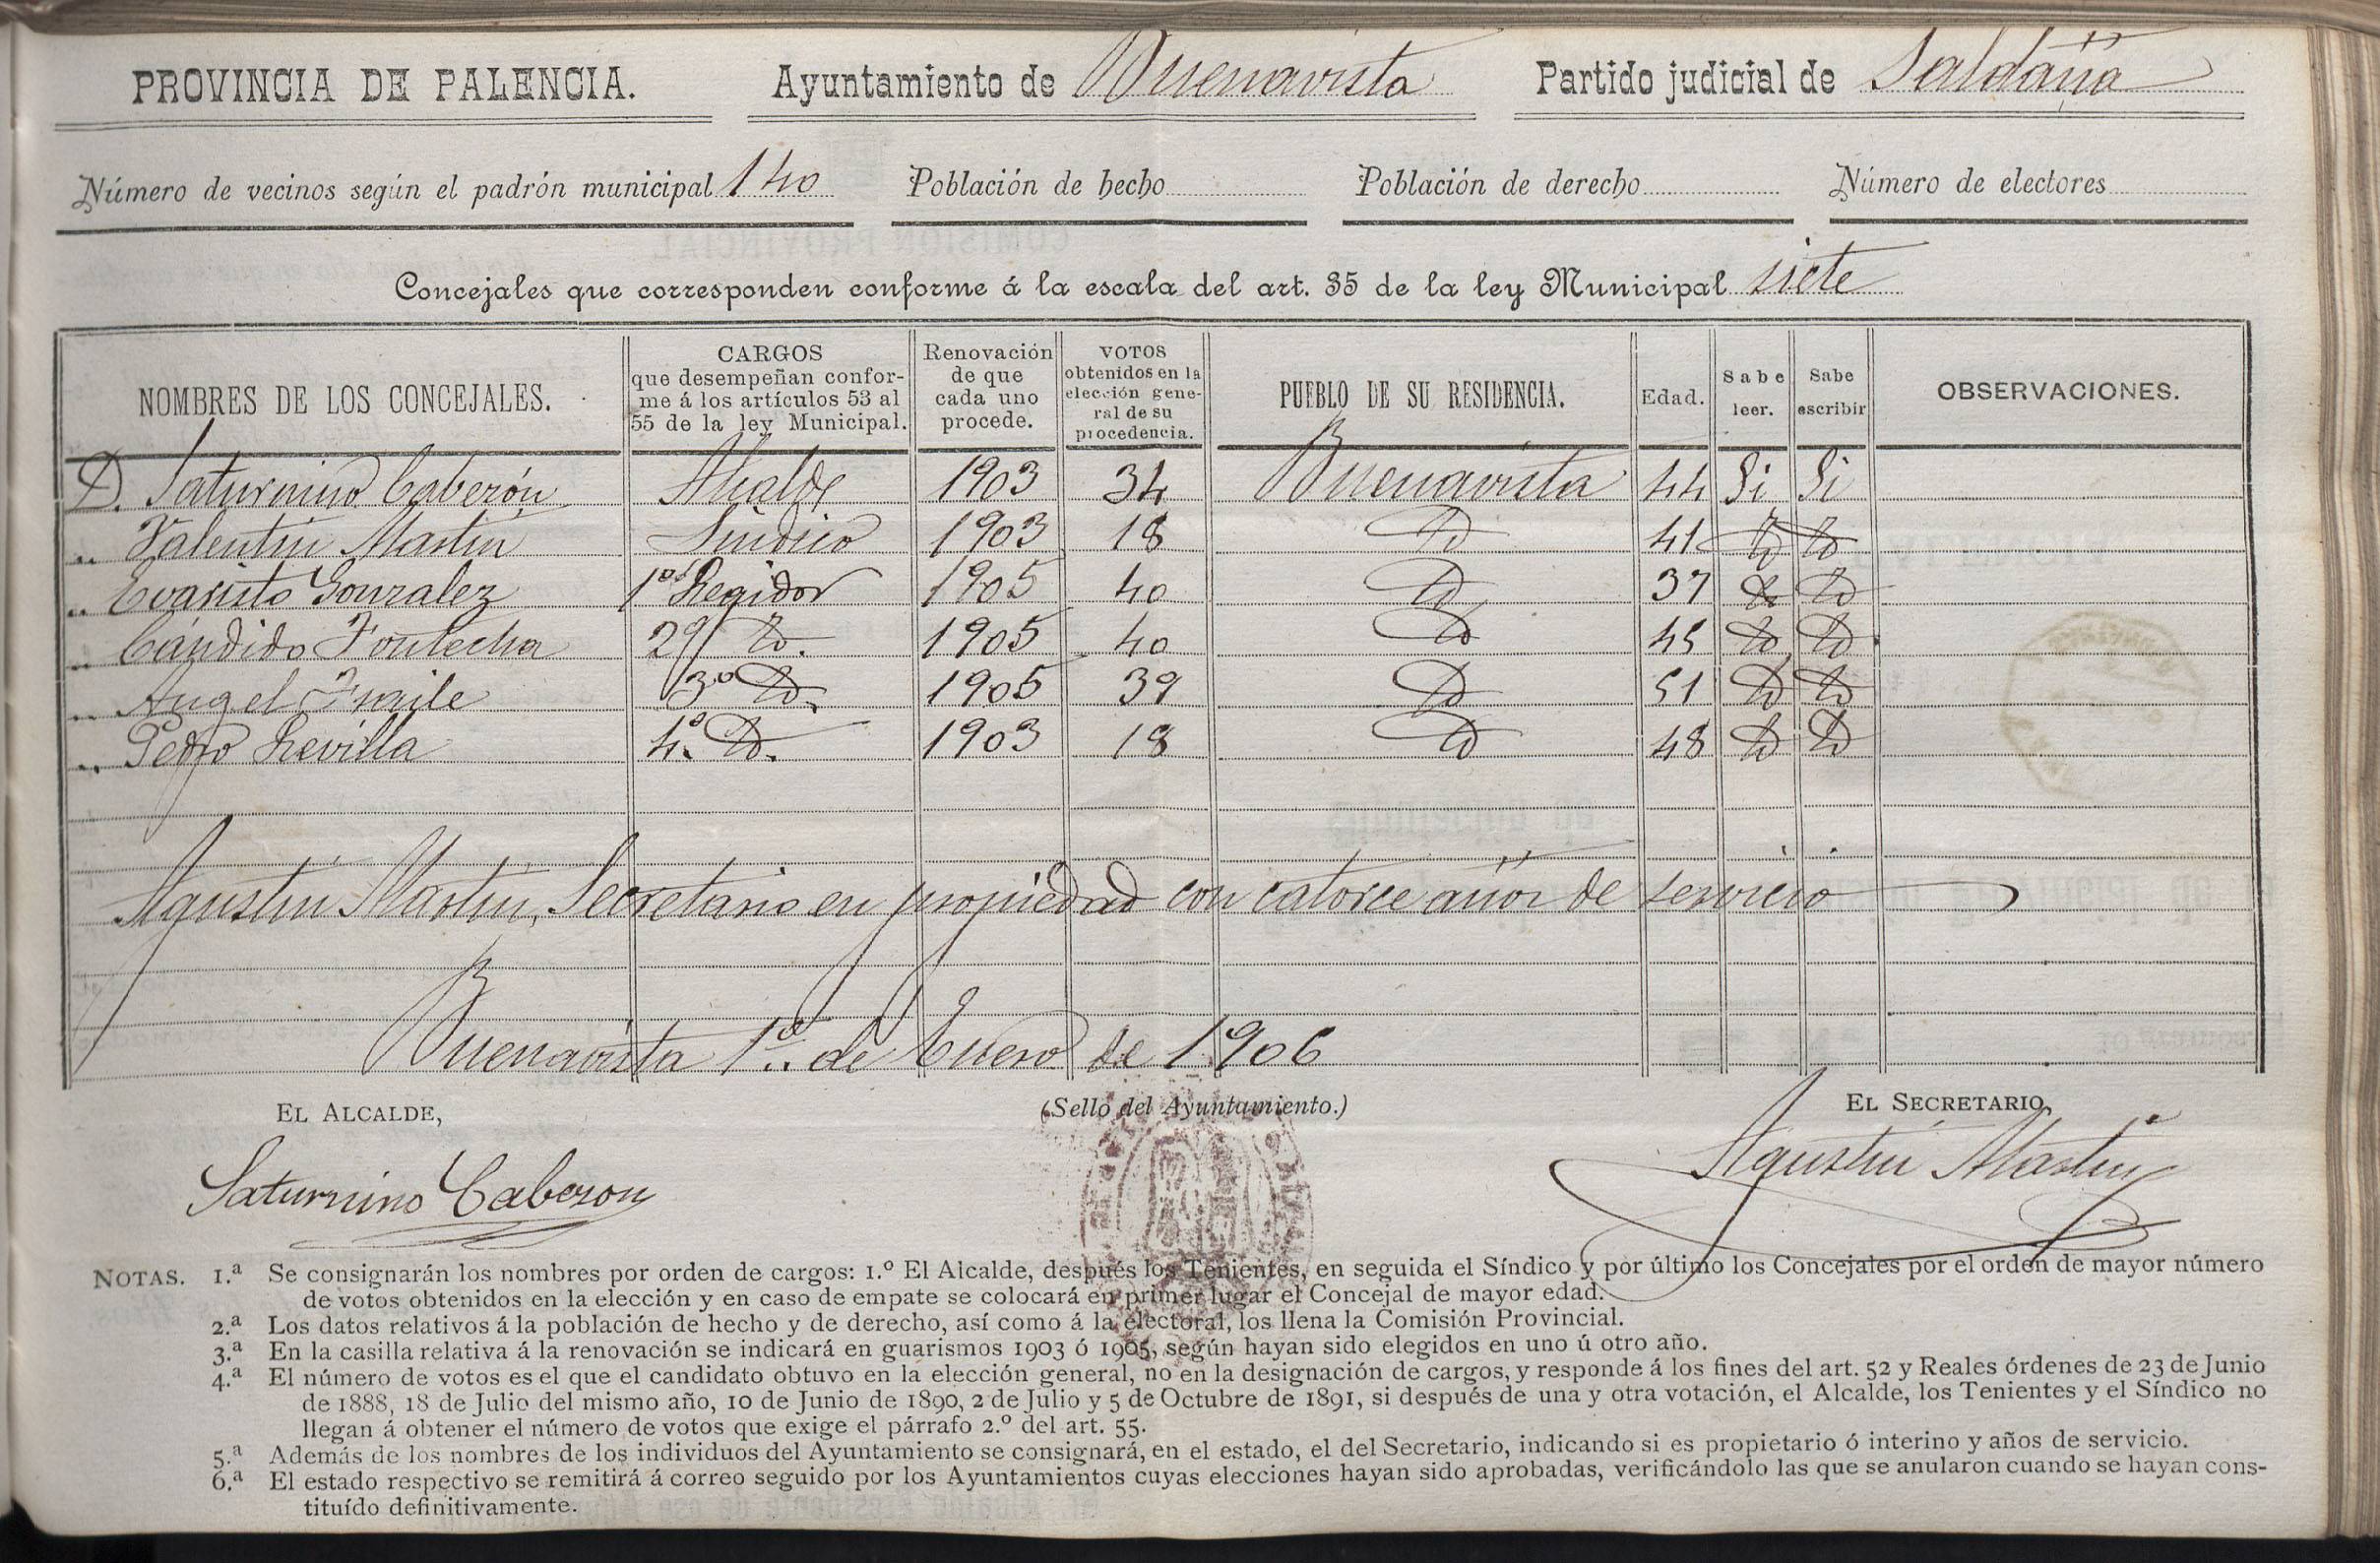 PROVINCIA DE PALENCIA. Ayuntamiento de Buenavista Partido judicial de Saldaña
Número de vecinos según el padrón municipal 140 Población de hecho Población de derecho Número de electores
Concejales que corresponden conforme á la escala del art. 35 de la ley Municipal siete
NOMBRES DE LOS CONCEJALES. CARGOS que desempeñan conforme á los artículos 53 al 55 de la ley Municipal. Renovación de que cada uno procede. VOTOS obtenidos en la elección general de su procedencia. PUEBLO DE SU RESIDENCIA. Edad. Sabe leer. Sabe escribir OBSERVACIONES.
D. Saturnino Caberón Alcalde 1903 34 Buenavista 44 Si Si
" Valentin Martin Sindico 1903 18 Id 41 Id Id
" Evaristo Gonzalez 1º Regidor 1905 40 Id 37 Id Id
" Cándido Fontecha 2º Id. 1905 40 Id 45 Id Id
" Angel Fraile 3º Id. 1905 39 Id 51 Id Id
" Pedro Revilla 4º Id. 1903 18 Id 48 Id Id
Agustin Martin, Secretario en propiedad con catorce años de servicio
Buenavista 1º de Enero de 1906
EL ALCALDE, (Sello del Ayuntamiento.) EL SECRETARIO,
Saturnino Caberon Agustin Martin
NOTAS. 1.ª Se consignarán los nombres por orden de cargos: 1.º El Alcalde, después los Tenientes, en seguida el Síndico y por último los Concejales por el orden de mayor número
de votos obtenidos en la elección y en caso de empate se colocará en primer lugar el Concejal de mayor edad.
2.ª Los datos relativos á la población de hecho y de derecho, así como á la electoral, los llena la Comisión Provincial.
3.ª En la casilla relativa á la renovación se indicará en guarismos 1903 ó 1905, según hayan sido elegidos en uno ú otro año.
4.ª El número de votos es el que el candidato obtuvo en la elección general, no en la designación de cargos, y responde á los fines del art. 52 y Reales órdenes de 23 de Junio
de 1888, 18 de Julio del mismo año, 10 de Junio de 1890, 2 de Julio y 5 de Octubre de 1891, si después de una y otra votación, el Alcalde, los Tenientes y el Síndico no
llegan á obtener el número de votos que exige el párrafo 2.º del art. 55.
5.ª Además de los nombres de los individuos del Ayuntamiento se consignará, en el estado, el del Secretario, indicando si es propietario ó interino y años de servicio.
6.ª El estado respectivo se remitirá á correo seguido por los Ayuntamientos cuyas elecciones hayan sido aprobadas, verificándolo las que se anularon cuando se hayan cons-
tituído definitivamente.